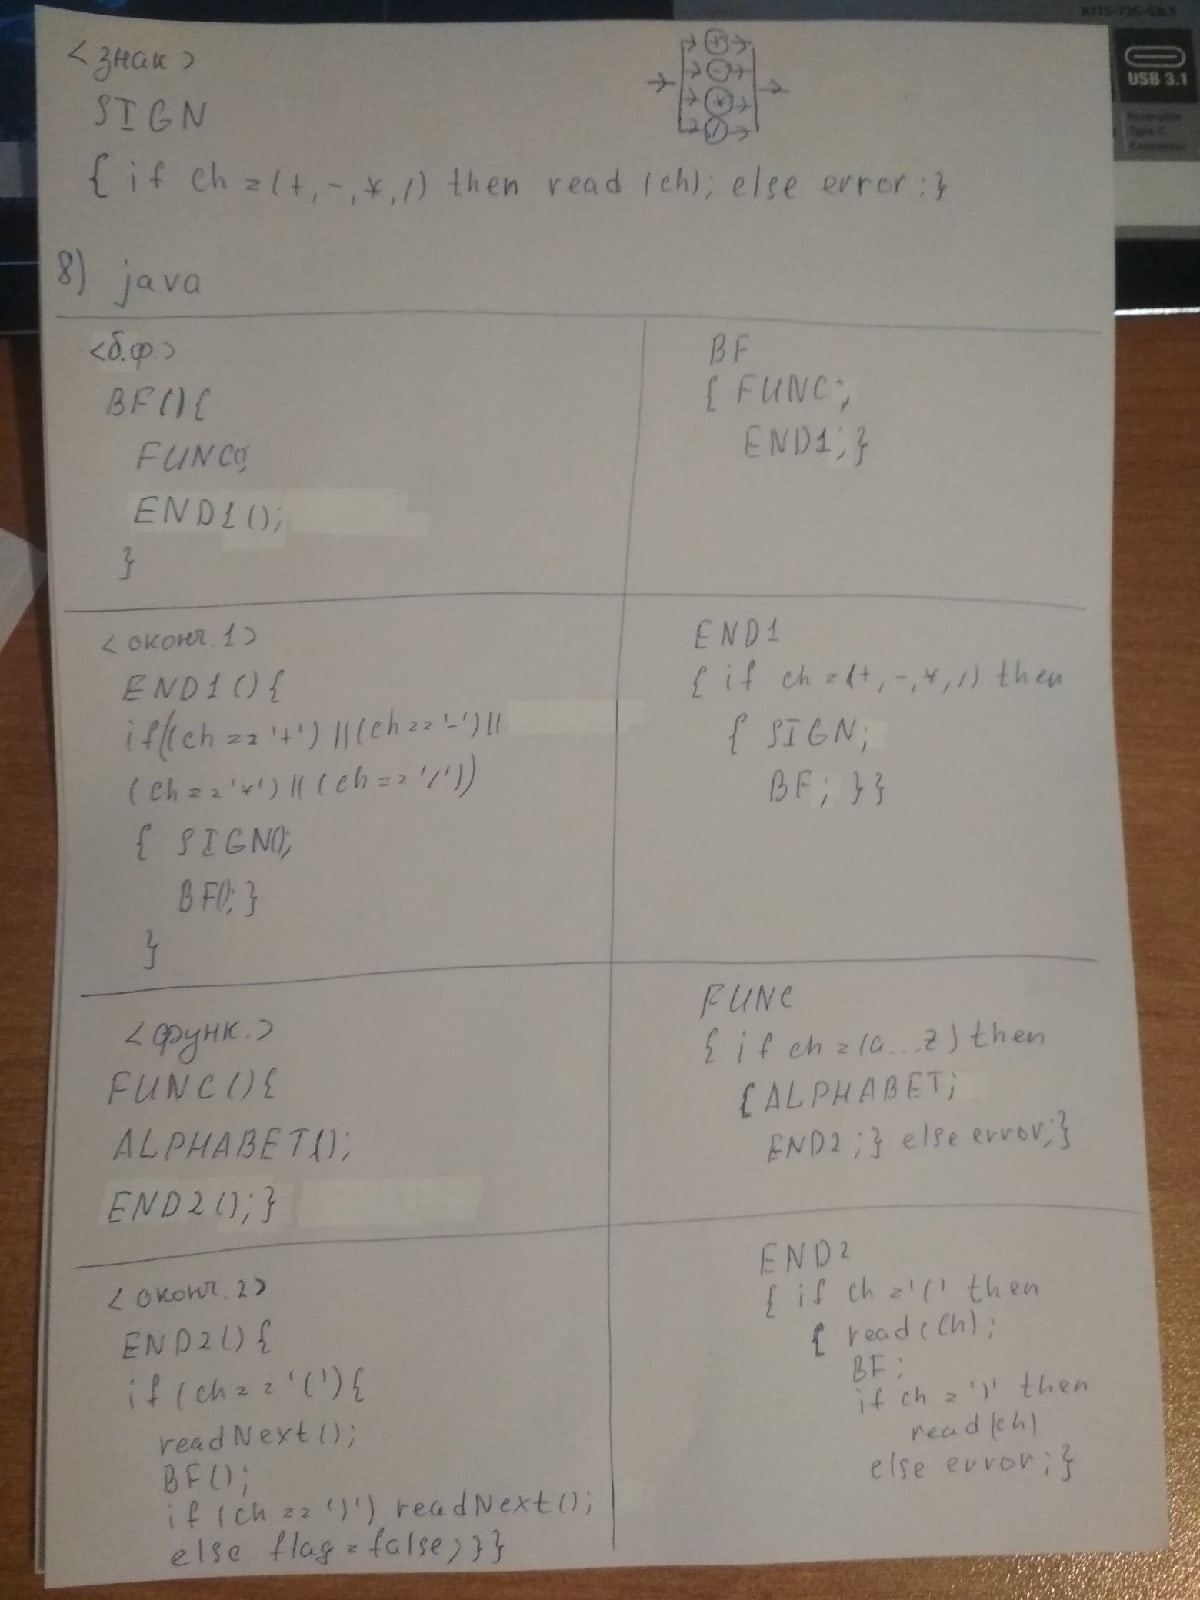 <знак>
SIGN
{ if ch = (+, -, *, /) then read (ch); else error; }
+
-
*
/
USB 3.1
8) java
<б.ф.>
BF(){
FUNC();
END1();
}
BF
{ FUNC;
END1; }
<оконч.1>
END1(){
if((ch == '+') || (ch == '-') ||
(ch == '*') || (ch == '/'))
{ SIGN();
BF(); }
}
END1
{ if ch = (+, -, *, /) then
{ SIGN;
BF; }}
<функ.>
FUNC(){
ALPHABET();
END2(); }
FUNC
{ if ch = (a...z) then
{ ALPHABET;
END2; } else error; }
<оконч.2>
END2(){
if (ch == '('){
readNext();
BF();
if (ch == ')') readNext();
else flag = false; }}
END2
{ if ch = '(' then
{ read(ch);
BF;
if ch = ')' then
read(ch)
else error; }